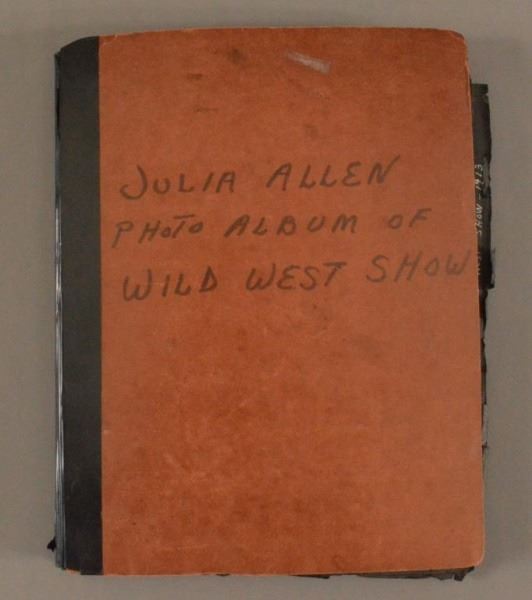 JULIA ALLEN
PHOTO ALBUM OF
WILD WEST SHOW
SHOW - 1913